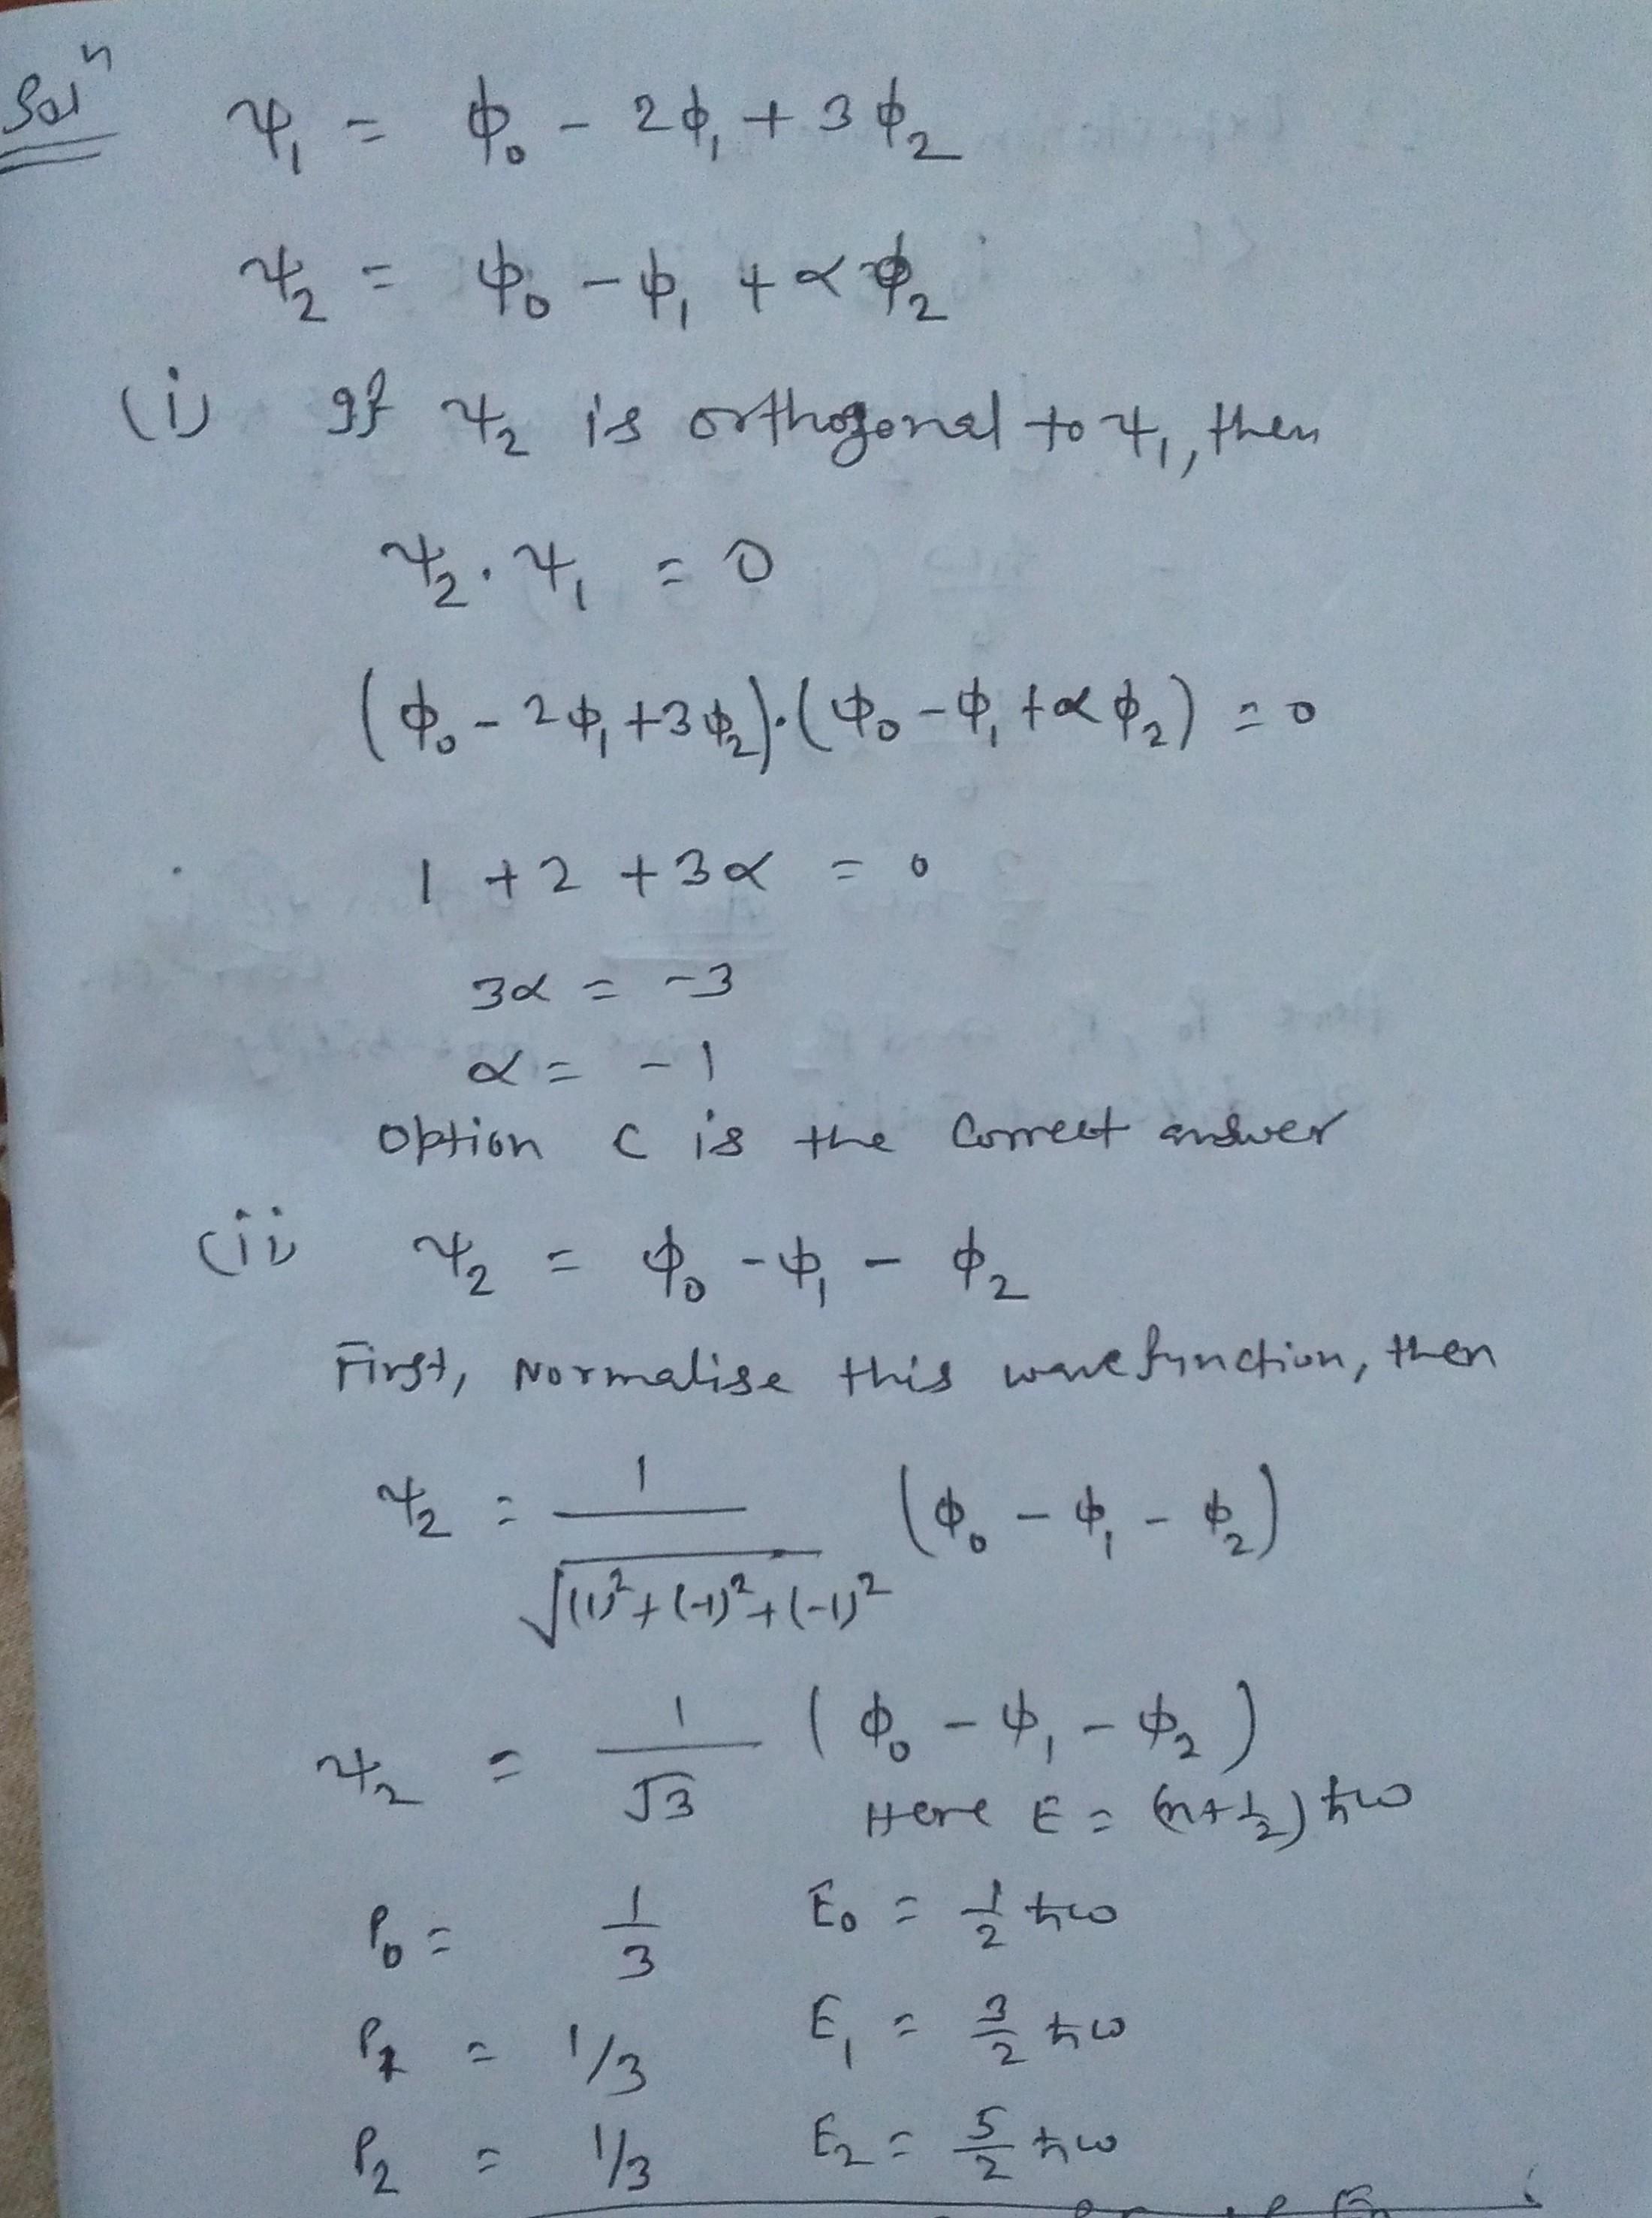 Solⁿ ψ₁ = ϕ₀ - 2ϕ₁ + 3ϕ₂
ψ₂ = ϕ₀ - ϕ₁ + αϕ₂
(i) If ψ₂ is orthogonal to ψ₁, then
ψ₂.ψ₁ = 0
(ϕ₀ - 2ϕ₁ + 3ϕ₂).(ϕ₀ - ϕ₁ + αϕ₂) = 0
1 + 2 + 3α = 0
3α = -3
α = -1
Option C is the correct answer
(ii) ψ₂ = ϕ₀ - ϕ₁ - ϕ₂
First, Normalise this wavefunction, then
ψ₂ = 1/√((1)²+(-1)²+(-1)²) (ϕ₀ - ϕ₁ - ϕ₂)
ψ₂ = 1/√3 (ϕ₀ - ϕ₁ - ϕ₂)
Here E = (n+1/2) ħω
P₀ = 1/3 E₀ = 1/2 ħω
P₁ = 1/3 E₁ = 3/2 ħω
P₂ = 1/3 E₂ = 5/2 ħω